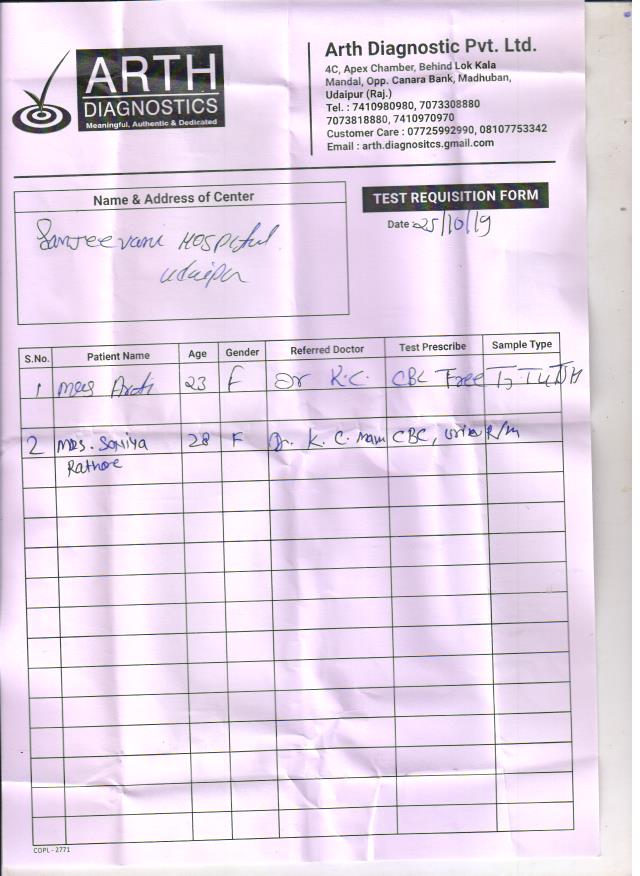 ARTH
DIAGNOSTICS
Meaningful, Authentic & Dedicated
Arth Diagnostic Pvt. Ltd.
4C, Apex Chamber, Behind Lok Kala
Mandal, Opp. Canara Bank, Madhuban,
Udaipur (Raj.)
Tel. : 7410980980, 7073308880
7073818880, 7410970970
Customer Care : 07725992990, 08107753342
Email : arth.diagnositcs.gmail.com
Name & Address of Center
Sanjeevani Hospital
Udaipur
TEST REQUISITION FORM
Date 25/10/19
S.No. Patient Name Age Gender Referred Doctor Test Prescribe Sample Type
1 Mrs 23 F Dr K.C. CBC Free T3 T4 TSH
2 Mrs. Soniya 28 F Dr. K. C. Mam CBC, Urine R/m
Rathore
COPL - 2771